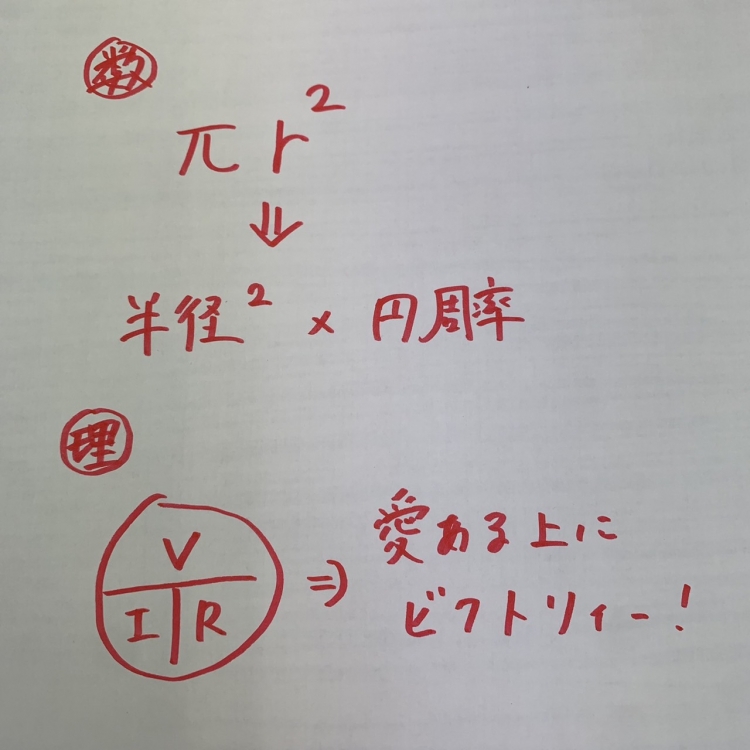 数
πr²
⇓
半径² × 円周率
理
V
I R
⇒ 愛ある上に
ビクトリィー!